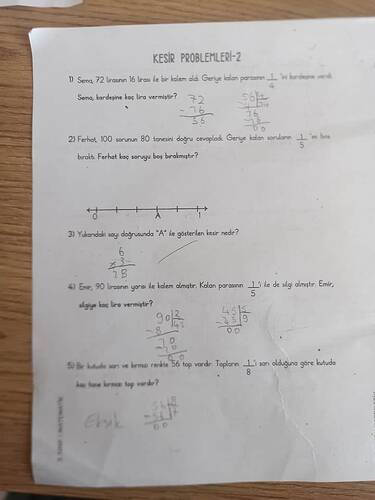 KESİR PROBLEMLERİ-2
1) Sema, 72 lirasının 16 lirası ile bir kalem aldı. Geriye kalan parasının 1/4 'ini kardeşine verdi.
Sema, kardeşine kaç lira vermiştir?
72
-16
56
56 4
16
00
2) Ferhat, 100 sorunun 80 tanesini doğru cevapladı. Geriye kalan soruların 1/5 'ini boş
bıraktı. Ferhat kaç soruyu boş bırakmıştır?
0 A 1
3) Yukarıdaki sayı doğrusunda "A" ile gösterilen kesir nedir?
6
x3
18
4) Emir, 90 lirasının yarısı ile kalem almıştır. Kalan parasının 1/5 'i ile de silgi almıştır. Emir,
silgiye kaç lira vermiştir?
90 2
-8 45
10
-10
00
45 5
-45 9
00
5) Bir kutuda sarı ve kırmızı renkte 56 top vardır. Topların 1/8 'i sarı olduğuna göre kutuda
kaç tane kırmızı top vardır?
Eksik
56 8
-56 7
00
3. SINIF - MATEMATİK